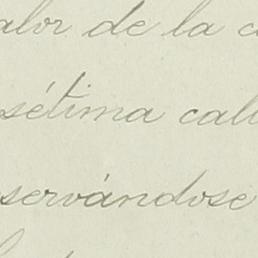 alor de la c
sétima cal
servándose